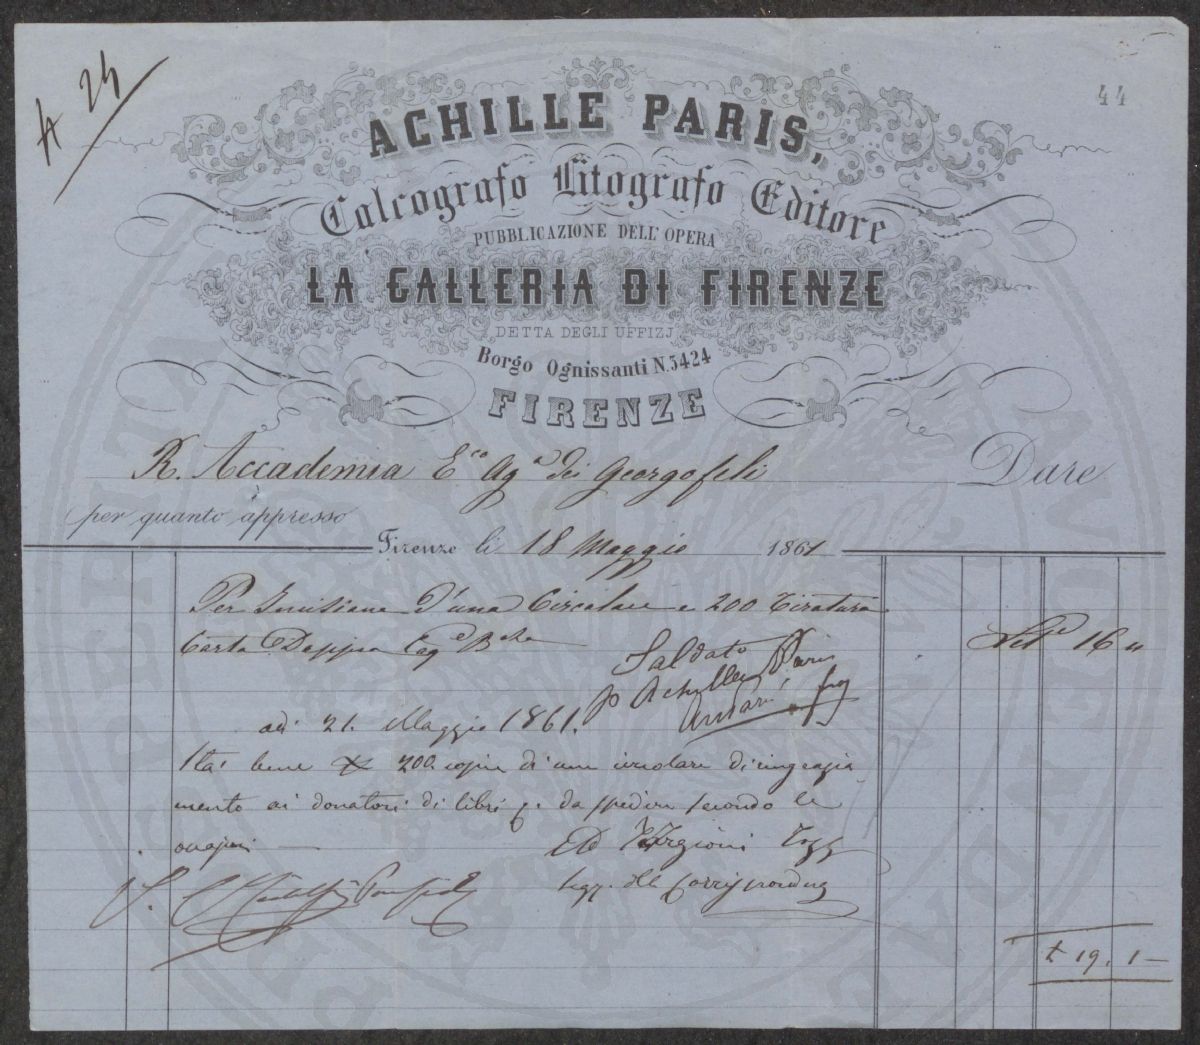 A 24
44
ACHILLE PARIS,
Calcografo Litografo Editore
PUBBLICAZIONE DELL' OPERA
LA GALLERIA DI FIRENZE
DETTA DEGLI UFFIZJ
Borgo Ognissanti N. 3424
FIRENZE
R. Accademia E.co Ag.a dei Georgofili Dare
per quanto appresso
Firenze li 18 Maggio 1861
Per Incisione d'una Circolare e 200 Tiratura
Carta Doppia 16 "
Saldato
p Achille Paris
adi 21. Maggio 1861.
Sta bene 200 copie di una circolare di ringrazia
mento ai donatori di libri da spedire secondo le
occasioni
Ad Targioni Tozz
Segr. delle Corrispondenze
£ 19. 1 —
PROSPERITÀ